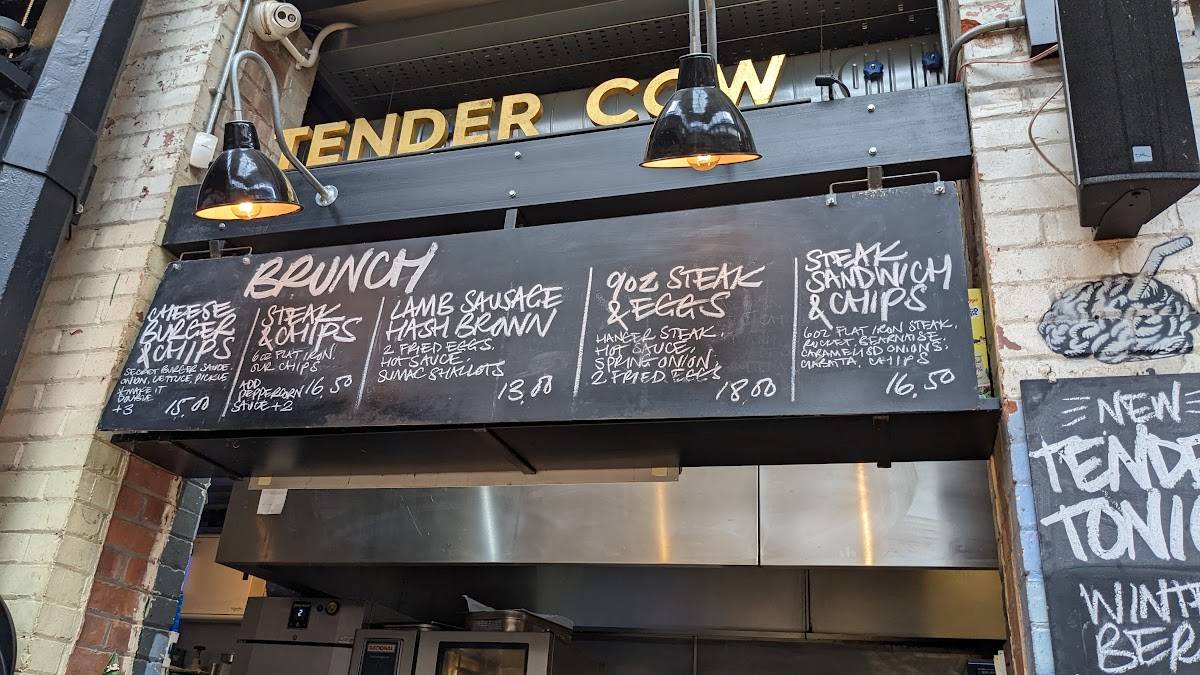 TENDER COW
BRUNCH
CHEESE
BURGER
& CHIPS
SECRET BURGER SAUCE
ONION, LETTUCE, PICKLE
MAKE IT
DOUBLE
+3
15.00
STEAK
& CHIPS
6OZ FLAT IRON.
OUR CHIPS
ADD
PEPPERCORN
SAUCE +2
16.50
LAMB SAUSAGE
HASH BROWN
2 FRIED EGGS.
HOT SAUCE.
SUMAC SHALLOTS
13.00
9OZ STEAK
& EGGS
HANGER STEAK.
HOT SAUCE,
SPRING ONION
2 FRIED EGGS
18.00
STEAK
SANDWICH
& CHIPS
6OZ FLAT IRON STEAK.
ROCKET, BEARNAISE.
CARAMELISED ONIONS.
CIABATTA, CHIPS
16.50
NEW
TENDE
TONI
WINT
BER
2
RATIONAL